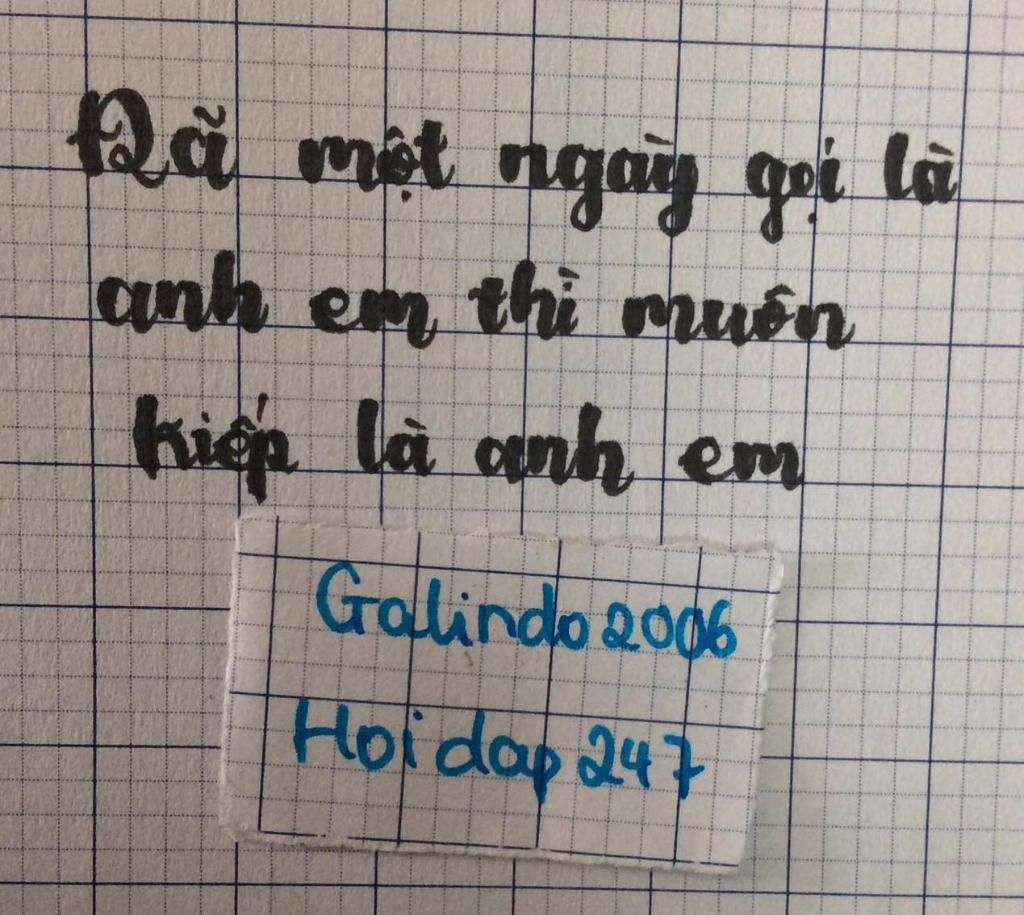 Đã một ngày gọi là
anh em thì muôn
kiếp là anh em
Galindo2006
Hoidap247